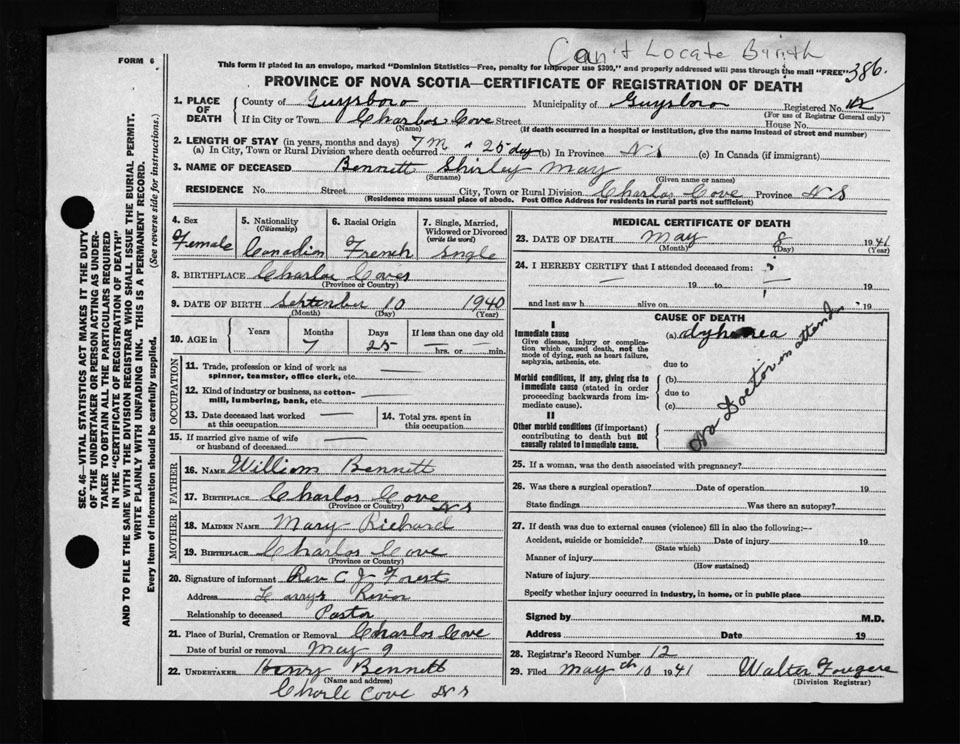 Can't Locate Birth
FORM 6
This form if placed in an envelope, marked "Dominion Statistics—Free, penalty for improper use $300," and properly addressed will pass through the mail "FREE"
386
PROVINCE OF NOVA SCOTIA—CERTIFICATE OF REGISTRATION OF DEATH
SEC. 46—VITAL STATISTICS ACT MAKES IT THE DUTY
OF THE UNDERTAKER OR PERSON ACTING AS UNDER-
TAKER TO OBTAIN ALL THE PARTICULARS REQUIRED
IN THE "CERTIFICATE OF REGISTRATION OF DEATH"
AND TO FILE THE SAME WITH THE DIVISION REGISTRAR WHO SHALL ISSUE THE BURIAL PERMIT.
WRITE PLAINLY WITH UNFADING INK. THIS IS A PERMANENT RECORD.
Every item of Information should be carefully supplied. (See reverse side for instructions.)
1. PLACE OF DEATH
County of Guysboro Municipality of Guysboro Registered No. 12
(For use of Registrar General only)
If in City or Town Charlos Cove Street House No.
(Name) (If death occurred in a hospital or institution, give the name instead of street and number)
2. LENGTH OF STAY (in years, months and days)
(a) In City, Town or Rural Division where death occurred 7 M 25 day (b) In Province N S (c) In Canada (if immigrant)
3. NAME OF DECEASED Bennett Shirley May
(Surname) (Given name or names)
RESIDENCE No. Street City, Town or Rural Division Charlos Cove Province N S
(Residence means usual place of abode. Post Office Address for residents in rural parts not sufficient)
4. Sex
Female
5. Nationality
(Citizenship)
Canadin
6. Racial Origin
French
7. Single, Married,
Widowed or Divorced
(write the word)
Sngle
8. BIRTHPLACE Charlos Coves
(Province or Country)
9. DATE OF BIRTH September 10 1940
(Month) (Day) (Year)
10. AGE in
Years Months Days If less than one day old
7 25 hrs. or min.
OCCUPATION
11. Trade, profession or kind of work as
spinner, teamster, office clerk, etc.
12. Kind of industry or business, as cotton-
mill, lumbering, bank, etc.
13. Date deceased last worked
at this occupation
14. Total yrs. spent in
this occupation
15. If married give name of wife
or husband of deceased
FATHER
16. NAME William Bennett
17. BIRTHPLACE Charlos Cove N S
(Province or Country)
MOTHER
18. MAIDEN NAME Mary Richard
19. BIRTHPLACE Charlos Cove
(Province or Country)
20. Signature of informant Rev C J Forest
Address Larrys River
Relationship to deceased Pastor
21. Place of Burial, Cremation or Removal Charlos Cove
Date of burial or removal May 9
22. UNDERTAKER Henry Bennett
(Name and address)
Charle Cove N S
MEDICAL CERTIFICATE OF DEATH
23. DATE OF DEATH May 8 1941
(Month) (Day) (Year)
24. I HEREBY CERTIFY that I attended deceased from:
19 to 19
and last saw h alive on 19
CAUSE OF DEATH
I
Immediate cause
Give disease, injury or complica-
tion which caused death, not the
mode of dying, such as heart failure,
asphyxia, asthenia, etc.
(a)
due to
Morbid conditions, if any, giving rise to
immediate cause (stated in order
proceeding backwards from im-
mediate cause).
(b)
due to
(c)
II
Other morbid conditions (if important)
contributing to death but not
causally related to immediate cause.
No Doctor in attend
25. If a woman, was the death associated with pregnancy?
26. Was there a surgical operation? Date of operation 19
State findings Was there an autopsy?
27. If death was due to external causes (violence) fill in also the following:—
Accident, suicide or homicide? Date of injury 19
(State which)
Manner of injury
(How sustained)
Nature of injury
Specify whether injury occurred in industry, in home, or in public place
Signed by M.D.
Address Date 19
28. Registrar's Record Number 12
29. Filed May th 10 1941 Walter Fougere
(Division Registrar)